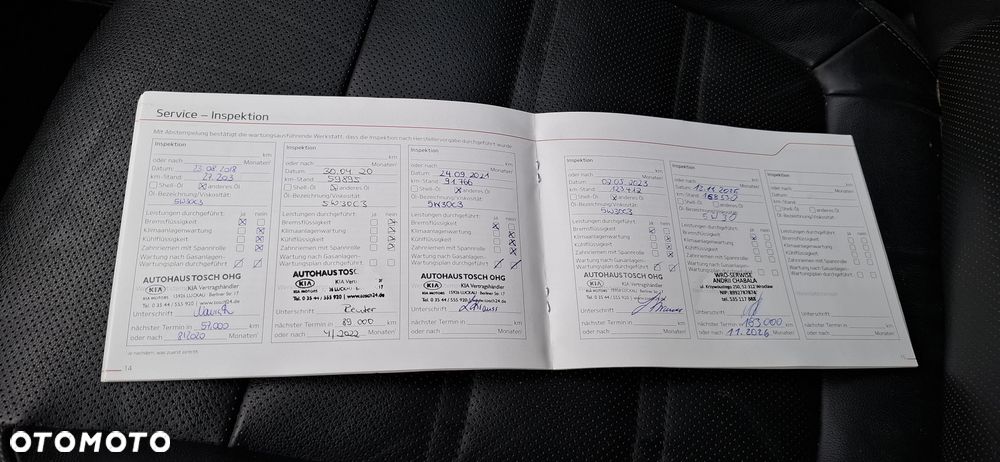 Service – Inspektion
Mit Abstempelung bestätigt die wartungsausführende Werkstatt, dass die Inspektion nach Herstellervorgabe durchgeführt wurde.
Inspektion
km
oder nach Monaten¹
Datum: 23.08.2018
km-Stand: 27.203
Shell-Öl anderes Öl
Öl-Bezeichnung/Viskosität:
5W30C3
Leistungen durchgeführt: ja nein
Bremsflüssigkeit
Klimaanlagenwartung
Kühlflüssigkeit
Zahnriemen mit Spannrolle
Wartung nach Gasanlagen-
Wartungsplan durchgeführt
AUTOHAUS TOSCH OHG
KIA KIA Vertragshändler
KIA MOTORS 15926 LUCKAU · Berliner Str. 17
Tel. 0 35 44 / 555 920 | www.tosch24.de
Unterschrift
nächster Termin in 57.000 km
oder nach Monaten¹
¹ je nachdem, was zuerst eintritt
14
Inspektion
km
oder nach Monaten¹
Datum: 30.04.20
km-Stand: 59895
Shell-Öl anderes Öl
Öl-Bezeichnung/Viskosität:
5W30C3
Leistungen durchgeführt: ja nein
Bremsflüssigkeit
Klimaanlagenwartung
Kühlflüssigkeit
Zahnriemen mit Spannrolle
Wartung nach Gasanlagen-
Wartungsplan durchgeführt
AUTOHAUS TOSC
KIA KIA Vertr
KIA MOTORS
Tel. 0 35 44 / 555 920 | www.tosch24.de
Unterschrift Reuter
nächster Termin in 89 000 km
oder nach 4/2022 Monaten¹
Inspektion
km
oder nach Monaten¹
Datum: 24.09.2021
km-Stand: 91.766
Shell-Öl anderes Öl
Öl-Bezeichnung/Viskosität:
5W30C3
Leistungen durchgeführt: ja nein
Bremsflüssigkeit
Klimaanlagenwartung
Kühlflüssigkeit
Zahnriemen mit Spannrolle
Wartung nach Gasanlagen-
Wartungsplan durchgeführt
AUTOHAUS TOSCH OHG
KIA KIA Vertragshändler
KIA MOTORS 15926 LUCKAU · Berliner Str. 17
Tel. 0 35 44 / 555 920 | www.tosch24.de
Unterschrift
nächster Termin in km
oder nach Monaten¹
Inspektion
km
oder nach Monaten¹
Datum: 02.03.2023
km-Stand:
Shell-Öl anderes Öl
Öl-Bezeichnung/Viskosität:
5W30C3
Leistungen durchgeführt: ja nein
Bremsflüssigkeit
Klimaanlagenwartung
Kühlflüssigkeit
Zahnriemen mit Spannrolle
Wartung nach Gasanlagen-
Wartungsplan durchgeführt
AUTOHAUS TOSCH OHG
KIA KIA Vertragshändler
KIA MOTORS 15926 LUCKAU · Berliner Str. 17
Tel. 0 35 44 / 555 920 | www.tosch24.de
Unterschrift
nächster Termin in km
oder nach Monaten¹
Inspektion
km
oder nach Monaten¹
Datum:
km-Stand:
Shell-Öl anderes Öl
Öl-Bezeichnung/Viskosität:
5W30
Leistungen durchgeführt: ja nein
Bremsflüssigkeit
Klimaanlagenwartung
Kühlflüssigkeit
Zahnriemen mit Spannrolle
Wartung nach Gasanlagen-
Wartungsplan durchgeführt
WRO-SERWISE
ANDRII CHABALA
tel. 535 117 868
Unterschrift
nächster Termin in 183000 km
oder nach 11.2026 Monaten¹
Inspektion
km
oder nach Monaten¹
Datum:
km-Stand:
Shell-Öl anderes Öl
Öl-Bezeichnung/Viskosität:
Leistungen durchgeführt: ja nein
Bremsflüssigkeit
Klimaanlagenwartung
Kühlflüssigkeit
Zahnriemen mit Spannrolle
Wartung nach Gasanlagen-
Wartungsplan durchgeführt
Unterschrift
nächster Termin in km
oder nach Monaten¹
15
OTOMOTO